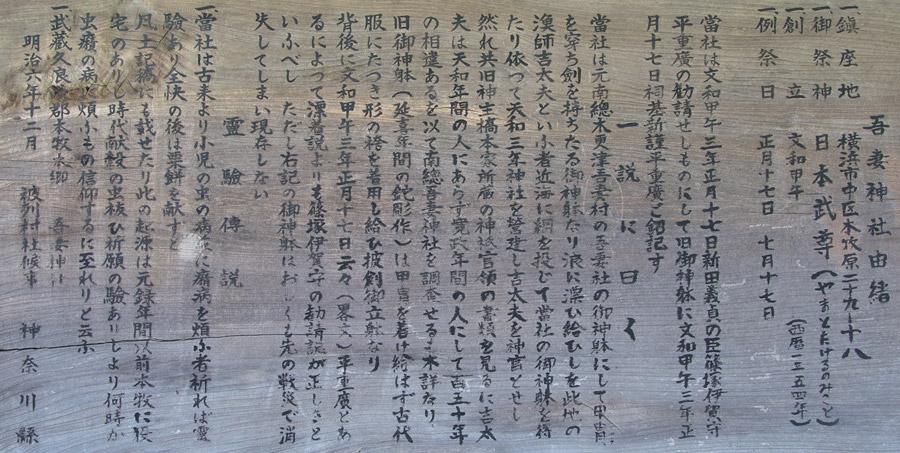 吾妻神社由緒
一鎮座地 横浜市中区本牧原二十九ー十八
一御祭神 日本武尊（やまとたけるのみこと）
一創立 文和甲午（西暦一三五四年）
一例祭日 正月十七日 十月十七日
当社は文和甲午三年正月十七日新田義貞の臣篠塚伊賀守
平重廣の勧請せしものにして旧御神躰に文和甲午三年正
月十七日祠基新謹平重廣と銘記す
一説に曰く
當社は元南總木更津吾妻村の吾妻社の御神躰にして甲冑
を穿ち剣を持ちたる御神躰なり浪に漂ひ給ひしを此地の
漁師吉太夫といふ者近海に網を投じて當社の御神躰を得
たり依つて天和三年神社を營建し吉太夫を神官とせし
然れ共旧神主橋本家所蔵の神祇官領の書類を見るに吉太
夫は天和年間の人にあらず寛政年間の人にして百五十年
の相違あるを以て南總吾妻神社を調査せるも未詳なり
旧御神躰（延喜年間の鉈彫作）は甲冑を着け給はず古代
服にたつき形の袴を着用し給ひ披劍御立躰なり
背後に文和甲午三年正月十七日云々（畧文）平重廣とあ
るによつて漂着説よりも篠塚伊賀守の勧請説が正しきと
いふべし ただし右記の御神躰はおしくも先の戦災で消
失してしまい現存しない
霊驗傳説
一當社は古来より小児の虫の病並に癪病を煩ふ者祈れば霊
驗あり全快の後は粟餅を献ずと
風土記稿にも載せたり此の起源は元録年間以前本牧に役
宅のありし時代献穀の虫祓ひ祈願の驗ありしより何時か
虫癪の病を煩ふもの信仰するに至れりと云ふ
一武蔵久良岐郡本牧本郷 吾妻神社
明治六年十二月 被列村社候事 神奈川縣